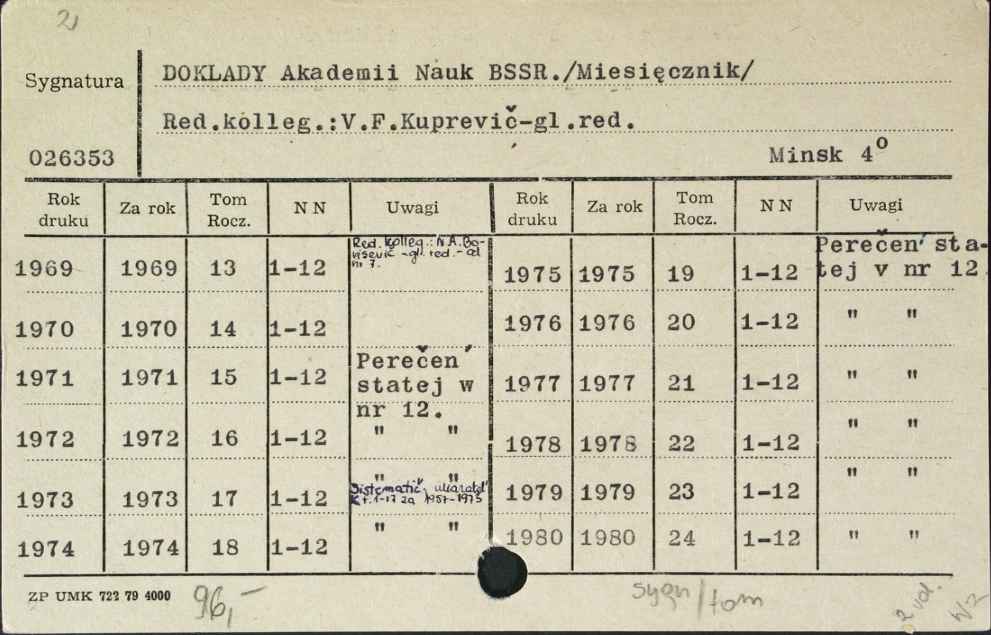 21
Sygnatura
DOKLADY Akademii Nauk BSSR./Miesięcznik/
Red.kolleg.:V.F.Kuprevič-gl.red.
026353
Minsk 4º
Rok druku Za rok Tom Rocz. N N Uwagi
1969 1969 13 1-12 Red. kolleg.: N.A.Bo-
risevič -gl. red. - od
nr 7.
1970 1970 14 1-12
1971 1971 15 1-12 Perečen′
statej w
nr 12.
1972 1972 16 1-12 " "
1973 1973 17 1-12 " "
Sistematič. ukazatel′
K t. 1-17 za 1957-1973
1974 1974 18 1-12 " "
Rok druku Za rok Tom Rocz. N N Uwagi
1975 1975 19 1-12 Perečen′ sta-
tej v nr 12.
1976 1976 20 1-12 " "
1977 1977 21 1-12 " "
1978 1978 22 1-12 " "
1979 1979 23 1-12 " "
1980 1980 24 1-12 " "
ZP UMK 722 79 4000
96,-
sygn/tom
2 vol.